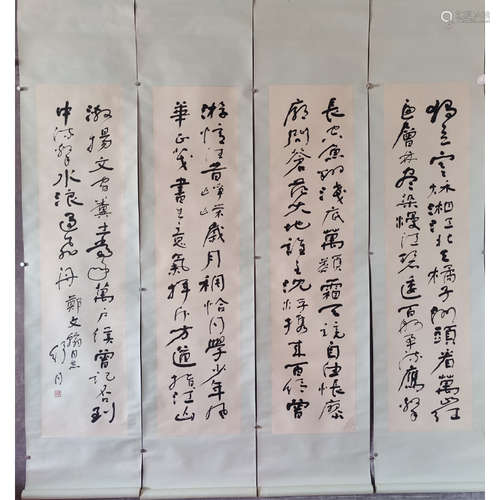 獨立寒秋湘江北去橘子洲頭看萬山红
遍層林尽染漫江碧透百舸争流鷹擊
長空魚翔淺底萬類霜天竞自由怅寥
廓问蒼茫大地谁主沉浮携来百侣曾
游憶往昔峥嵘歲月稠恰同學少年风
華正茂書生意氣揮斥方遒指江山
激揚文字糞土當年萬户侯曾記否到
中流擊水浪遏飛舟 鄭文翰同志
舒同